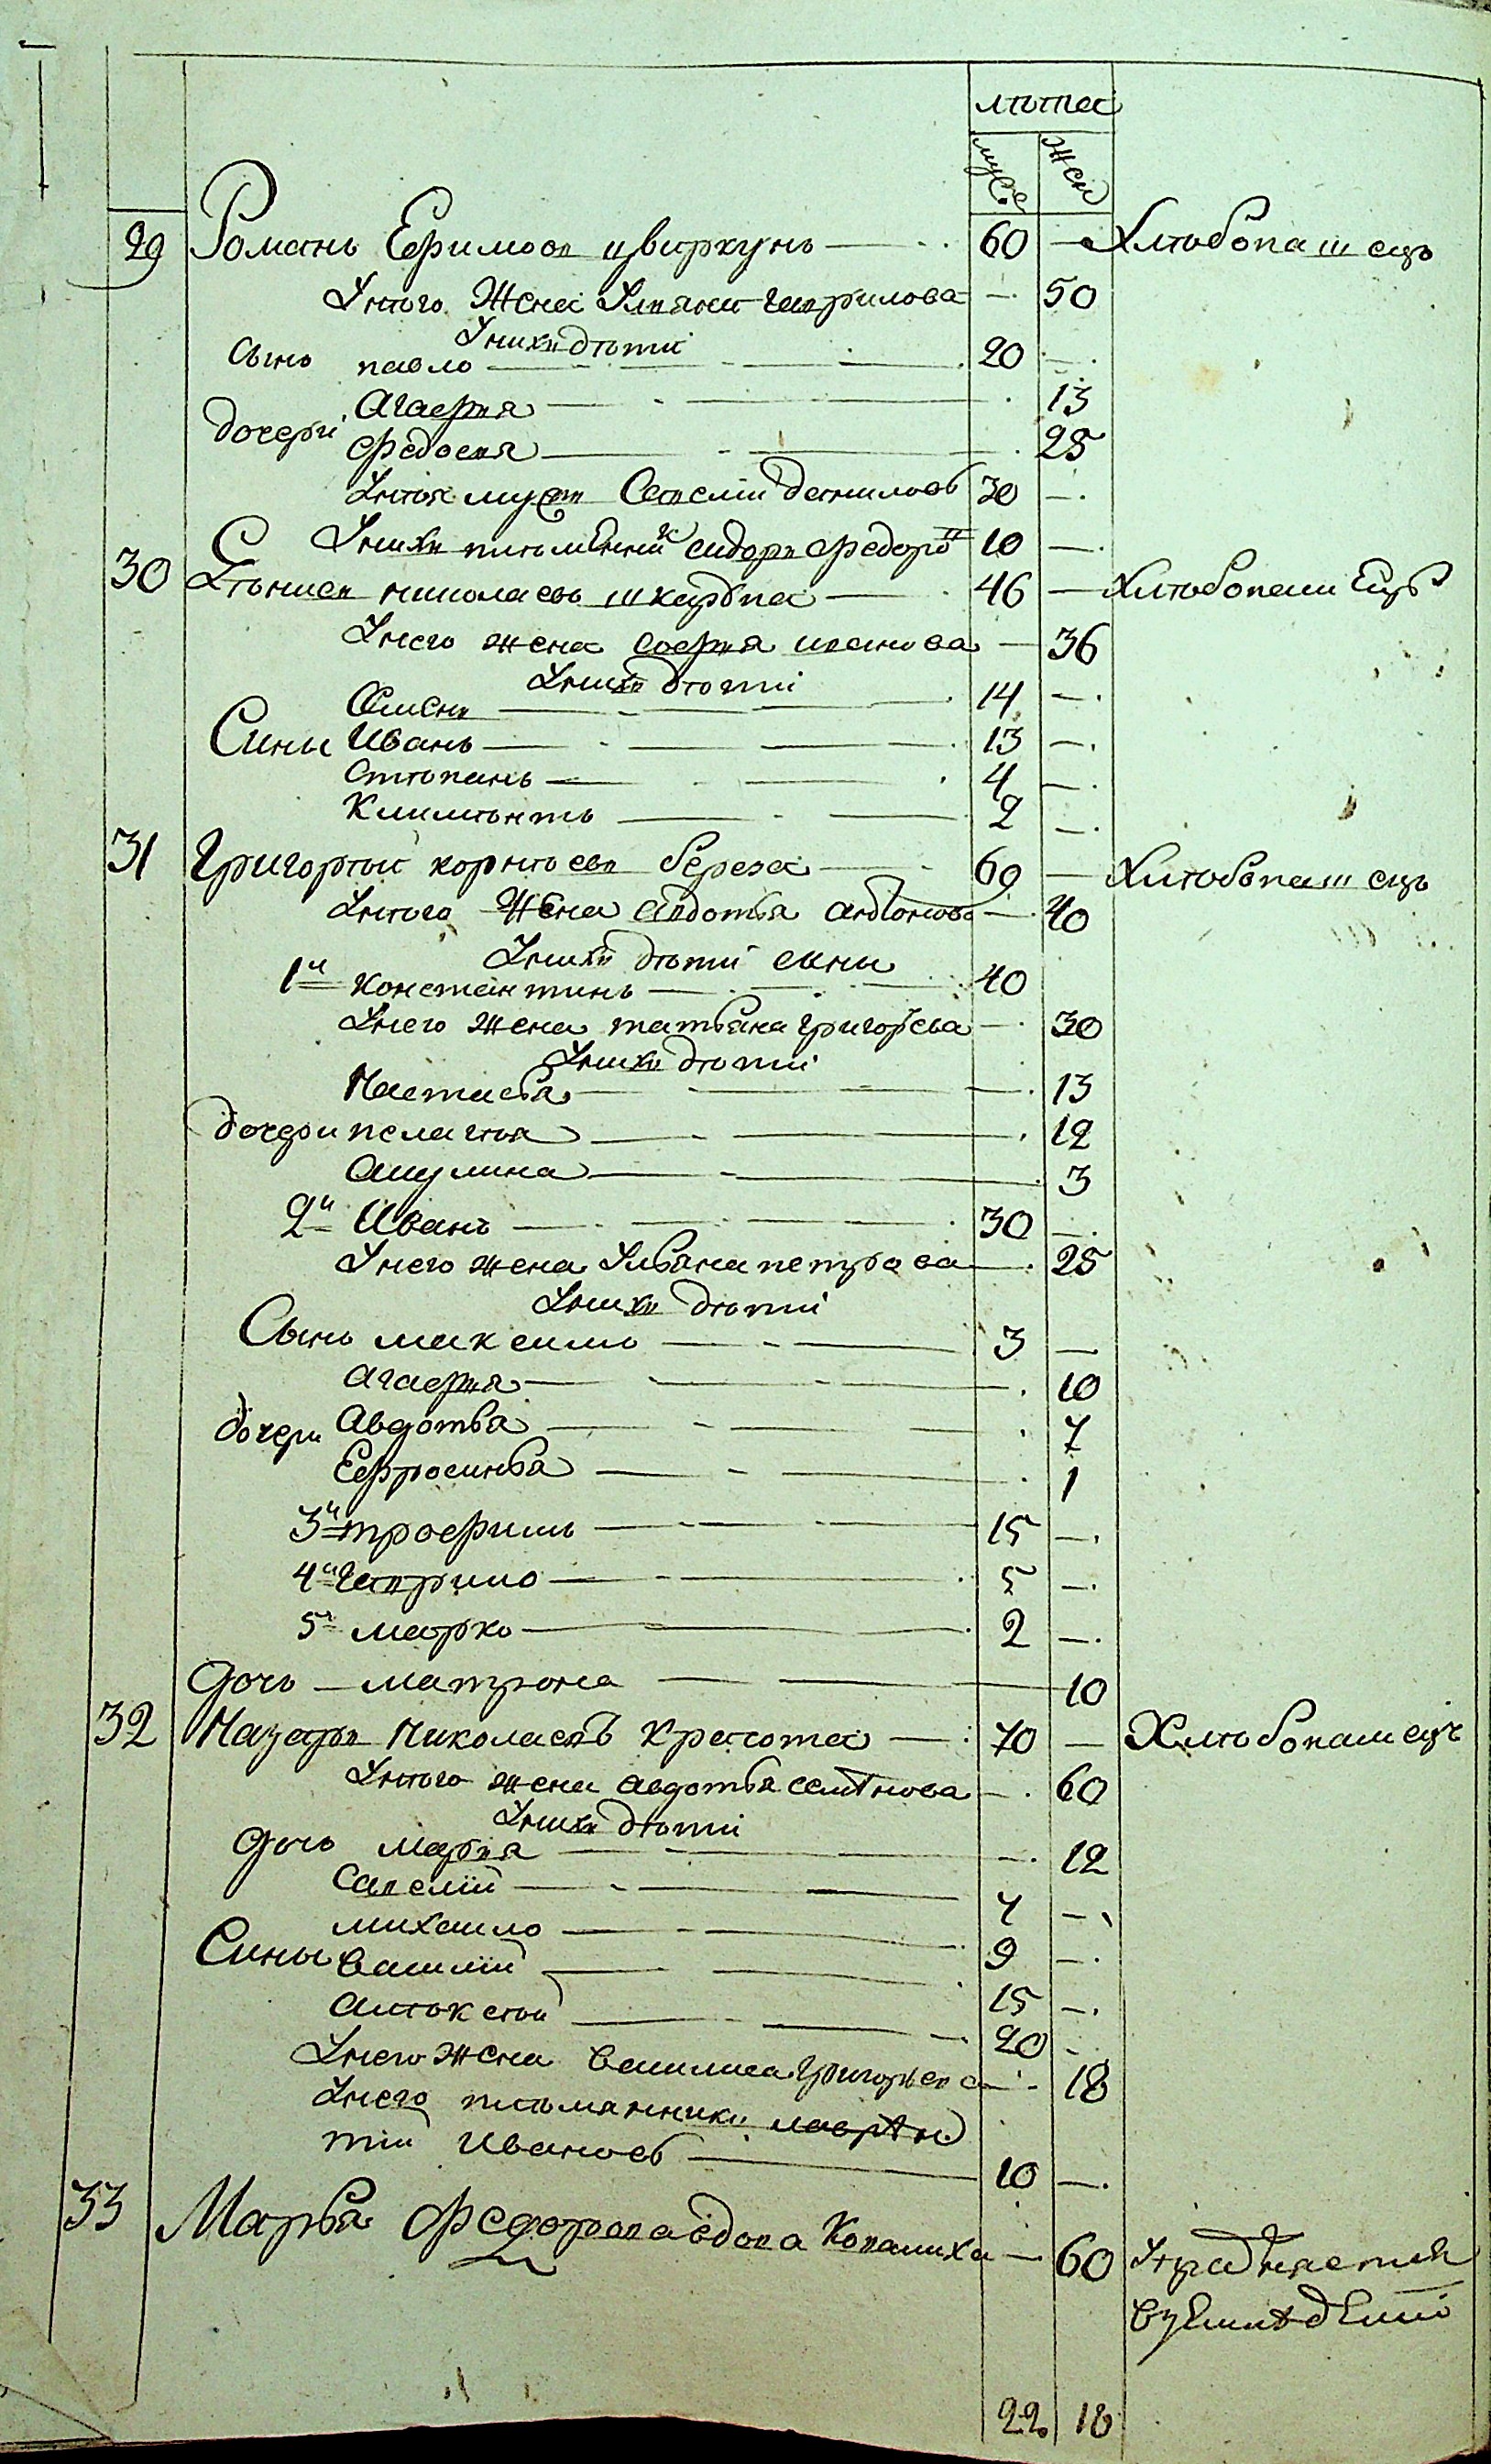 лѣта
муж жен
29 Романъ Ефимовъ цвиркунъ 60 — Хлѣбопашецъ
У него Жена Уляна гаврилова — 50
У нихъ дѣти
Сынъ павло 20 —
Агафия 13
дочери
Федосия 25
У нея мужъ Савелій даниловъ 30 —
У нихъ письмѣнникъ сидоръ федоро 10 —
30 николаевъ шкурпа 46 — Хлѣбопашецъ
У него жена софия иванова — 36
У нихъ дѣти
Семенъ 14 —
Сины Иванъ 13 —
Стѣпанъ 4 —
Климѣнть 2 —
31 Григорѣй корнѣевъ береза 69 — Хлѣбопашецъ
У него Жена авдотья антонова — 40
У нихъ дѣти сыны
1й константинъ 40
У него Жена татьяна григорьева — 30
У нихъ дѣти
Настасья 13
дочери пелагѣя 12
Акулина 3
2й Иванъ 30 —
У него жена Ульяна петрова — 25
У нихъ дѣти
Сынъ максимъ 3 —
агафия 10
дочери Авдотья 7
Ефросинья 1
3й трофимъ 15 —
4й гаврило 5 —
5й марко 2 —
Дочь — матрона 10
32 Назаръ Николаевъ красота 70 — Хлѣбопашецъ
У него жена авдотья семѣнова — 60
У нихъ дѣти
Дочь Мария — 12
Савелій 4 —
михаило 9 —
Сины
Василій 15 —
алѣксѣй 20 —
У него жена Василиса Григорьева — 18
У него письмянникъ лаврѣн
тій Ивановъ 10 —
33 Марья Федорова вдова Ковалиха — 60
22 18